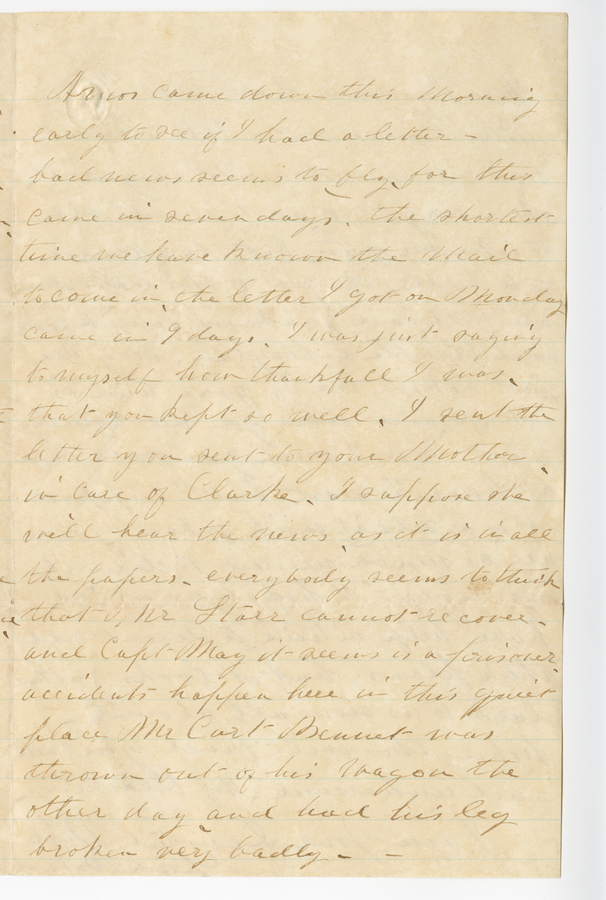 Amos came down this Morning
early to see if I had a letter -
bad news seems to fly, for this
came in seven days. the shortest
time we have known the Mail
to come in, the letter I got on Monday
came in 9 days. I was just saying
to myself how thankfull I was,
that you kept so well. I sent the
letter you sent to your Mother,
in care of Clarke. I suppose she
will hear the news, as it is in all
the papers - everybody seems to think
that Mr Starr cannot recover -
and Capt May it seems is a prisoner.
accidents happen here in this quiet
place Mr Curt Bennet was
thrown out of his wagon the
other day and had his leg
broken very badly - -